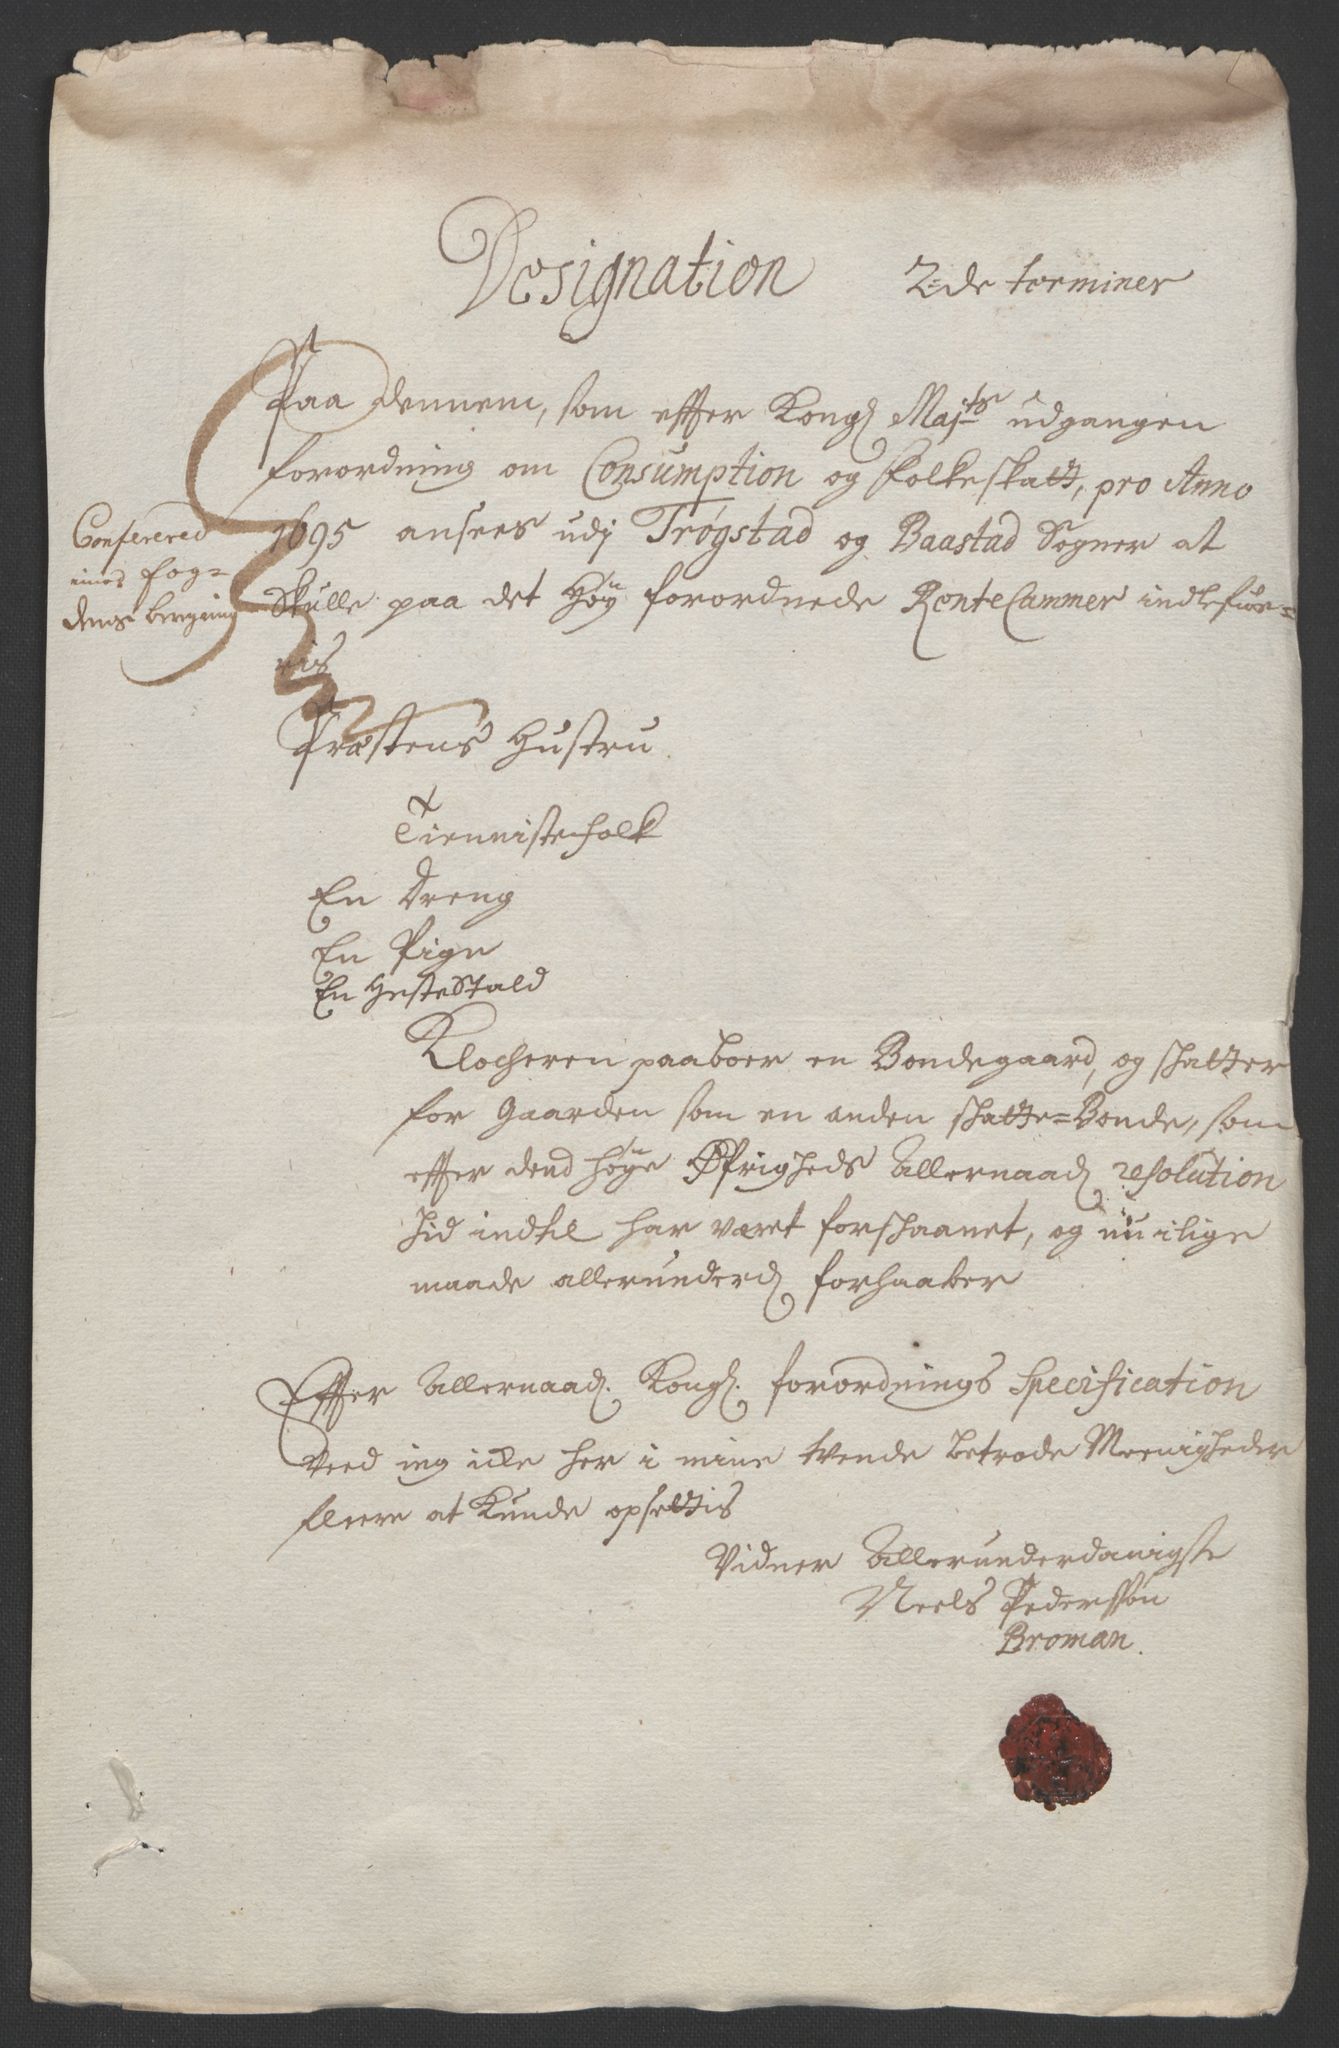 Designation 2de terminer
Paa dennem, som effter Kongl Majts udgangen
forordning om Consumption og folkeskatt, pro Anno
1695 ansees udj Trøgstad og Baastad Sogner at
Skulle paa det Høÿ forordnede RenteCammer indleføe=
ris
Conferered
imod fog=
dens
Præstens Hustru
Tiennistefolk
En Dreng
En Pige
En HesteStald
Klocheren paaboer en Bondegaard, og skatter
for Gaarden som en anden skatte=Bonde, som
effter dend høÿe Øfrigheds Allernaadl resolution
hid indtil har været forskaanet, og nu ilige
maade allerunderdl forhaaber
Effter Allernaadl. Kongl. forordnings Specification
Veed ieg icke her i mine tvende betrode Meenigheder
fleere at Kunde opsettis
Vidner Allerunderdanigste
Neels Pederssøn
Broman.